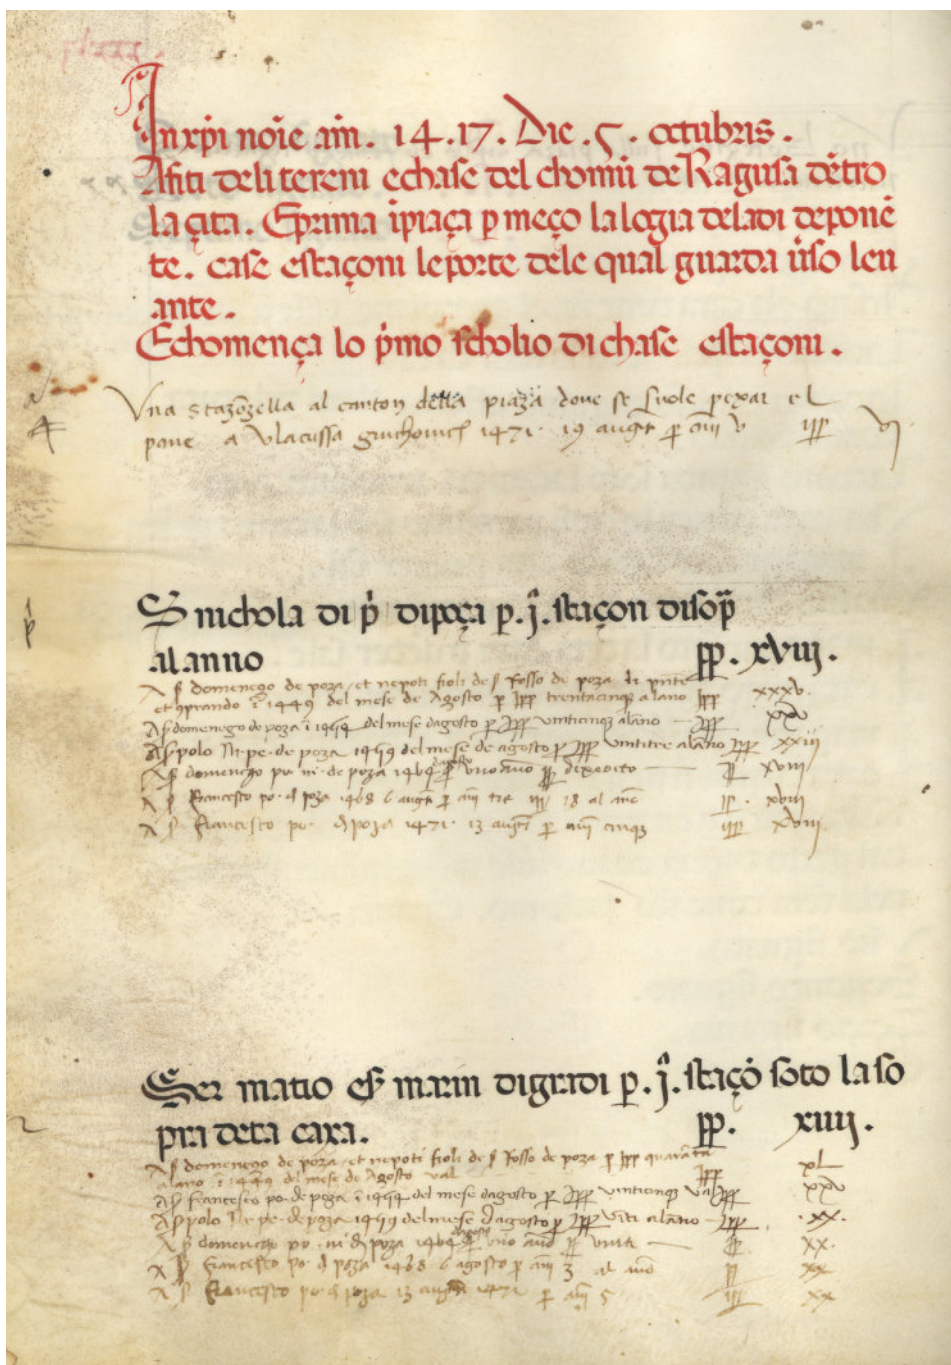 In xp̄i noīe am̄. 14.17. Die. 5. octubris.
Afiti deli tereni echase del chomū de Ragusa dētro
la çita. Eprima īpiaça p meço la logia deladi deponē
te. case estaçoni leporte dele qual guarda ūso leu
ante.
Echomença lo p̄mo scholio di chase estaçoni.
Vna stazōzella al canton della piaza doue se suole pexar el
pane a Vlacussa 1471. 19 augₜ p anni v ppp vj
S nichola di p̄ dipoça p. j̄. staçon disop̄
alanno pp. xviii.
A s domenego de poza et nepoti fioli de s Iosso de poza
ī 1449 del mese de Agosto p ppp trentacinque alano ppp xxxv.
A s domenego de poza ī 1454 del mese dagosto p ppp vinticinque alāno ppp xxv
A s polo de poza 1459 del mese de agosto p ppp vintitre alāno ppp xxiii
A s domenego de poza 1464 pp dixedoto pp xviii
A s francesco po. d poza 1468 6 augₜ p ann tre 18 al ano pp. xviii
A s francesco po. d poza 1471. 13 augₜ p anni cinque ppp xviii
Ser matio es marin digradi p. j̄. staçō soto la so
pra deta caxa. pp. xiiii.
A s domenego de poza et nepoti fioli de s Iosso de poza p ppp quarāta xL
alano ī 1449 del mese de Agosto val ppp
A s francesco po. de poza ī 1454 del mese dagosto p ppp vinticinque val ppp xxv
A s polo de poza 1459 del mese d agosto p ppp vīti alāno ppp .xx.
A s domenego po. d poza 1464 vno pp vinti pp xx.
A s francesco po. d poza 1468 6 agosto p ann 3 al ano pp xx
A s francesco po. d poza 13 augₜ 1471 p anni 5 ppp xx